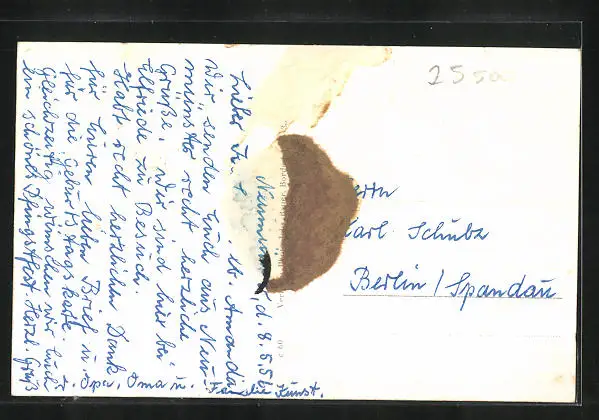 255a
Neumün , d. 8.5.5
Liebe , lb. Amanda
Wir senden Euch aus Neu-
münster recht herzliche
Grüße. Wir sind hier bei
Elfriede zu Besuch.
Habt recht herzlichen Dank
für Euren lieben Brief u.
für die Geburtstagskarte.
Gleichzeitig wünschen wir Euch
ein schönes Pfingstfest. Herzl. Grüße
Opa, Oma u.
Familie Kunst.
errn
Karl Schulz
Berlin / Spandau